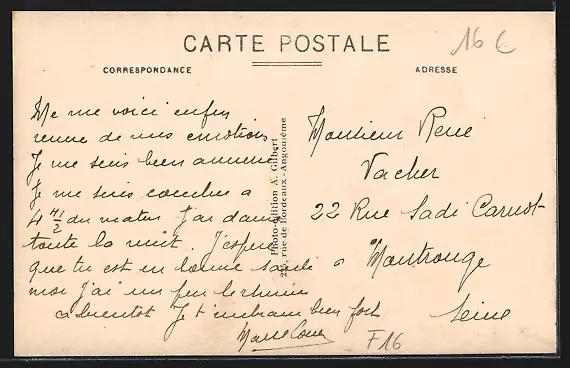 CARTE POSTALE
16 €
CORRESPONDANCE
ADRESSE
Me me voici enfin
remie de mes emotions
Je me suis bien amusé
Je me suis couchée a
4 h 1/2 du matin J'ai dansé
toute la nuit. J'espere
que tu est en bonne santé
moi j'ai un peu le rhume
a bientot Je t'embrasse bien fort
Photo-édition A. Gilbert
rue de Bordeaux - Angoulême
Monsieur René
Vacher
22 Rue Sadi Carnot
a Montrouge
Seine
F16